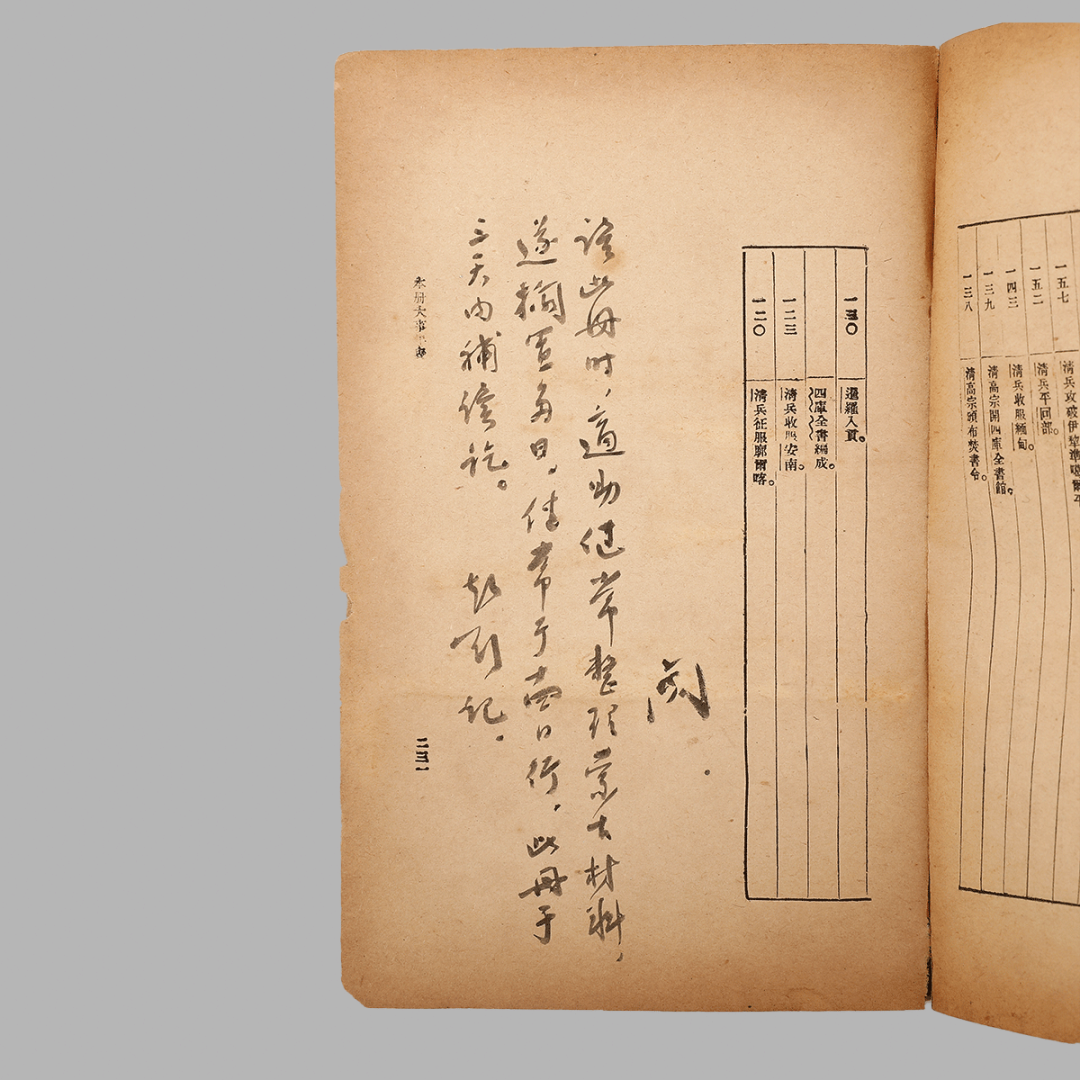 一五七 清兵攻破伊犂準噶爾平
一五二 清兵平回部。
一四三 清兵收服緬甸。
一三九 清高宗開四庫全書館。
一三八 清高宗頒布焚書令。
一三〇 暹羅入貢。
四庫全書編成。
一二三 清兵收服安南。
一二〇 清兵征服廓爾喀。
读此册时，適助健常整理蒙古材料，
遂搁置多日。健常于日行，此册于
三天内補读讫。 颉刚记。
本册大事年表
二三一